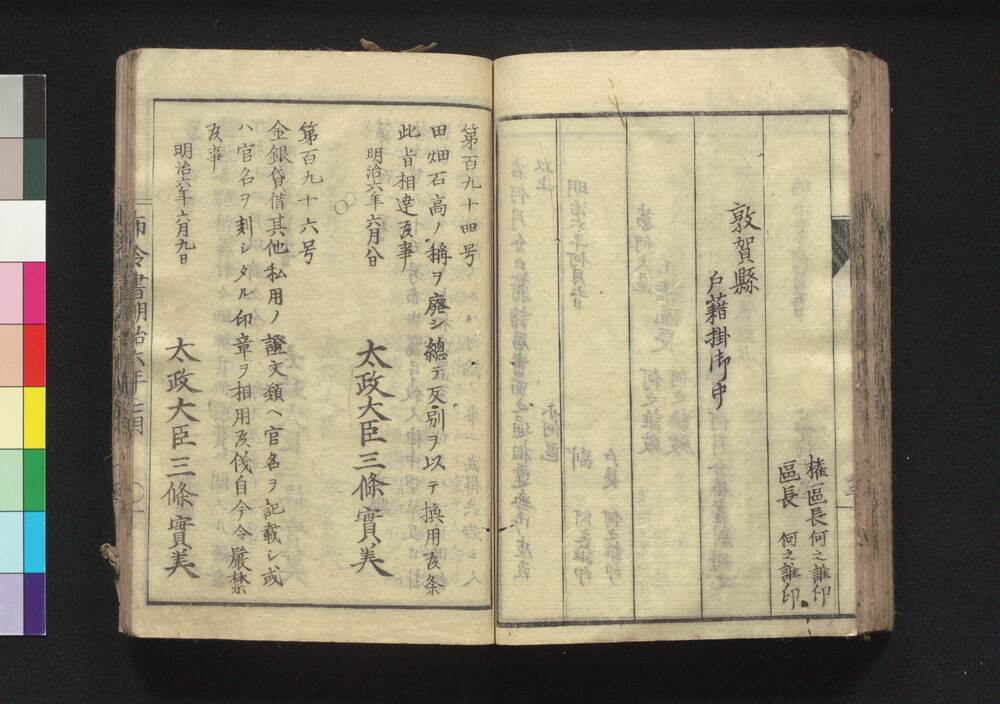 權區長何之誰印
區長　何之誰印
敦賀縣
戸籍掛御中
第百九十四号
田畑石高ノ稱ヲ廃シ總テ反別ヲ以テ換用候条
此旨相達候事
明治六年六月八日
太政大臣三條實美
第百九十六号
金銀貸借其他私用ノ證文類ヘ官名ヲ記載シ或
ハ官名ヲ刻シタル印章ヲ相用候儀自今令嚴禁
候事
明治六年六月九日
太政大臣三條實美
布令書明治六年七月